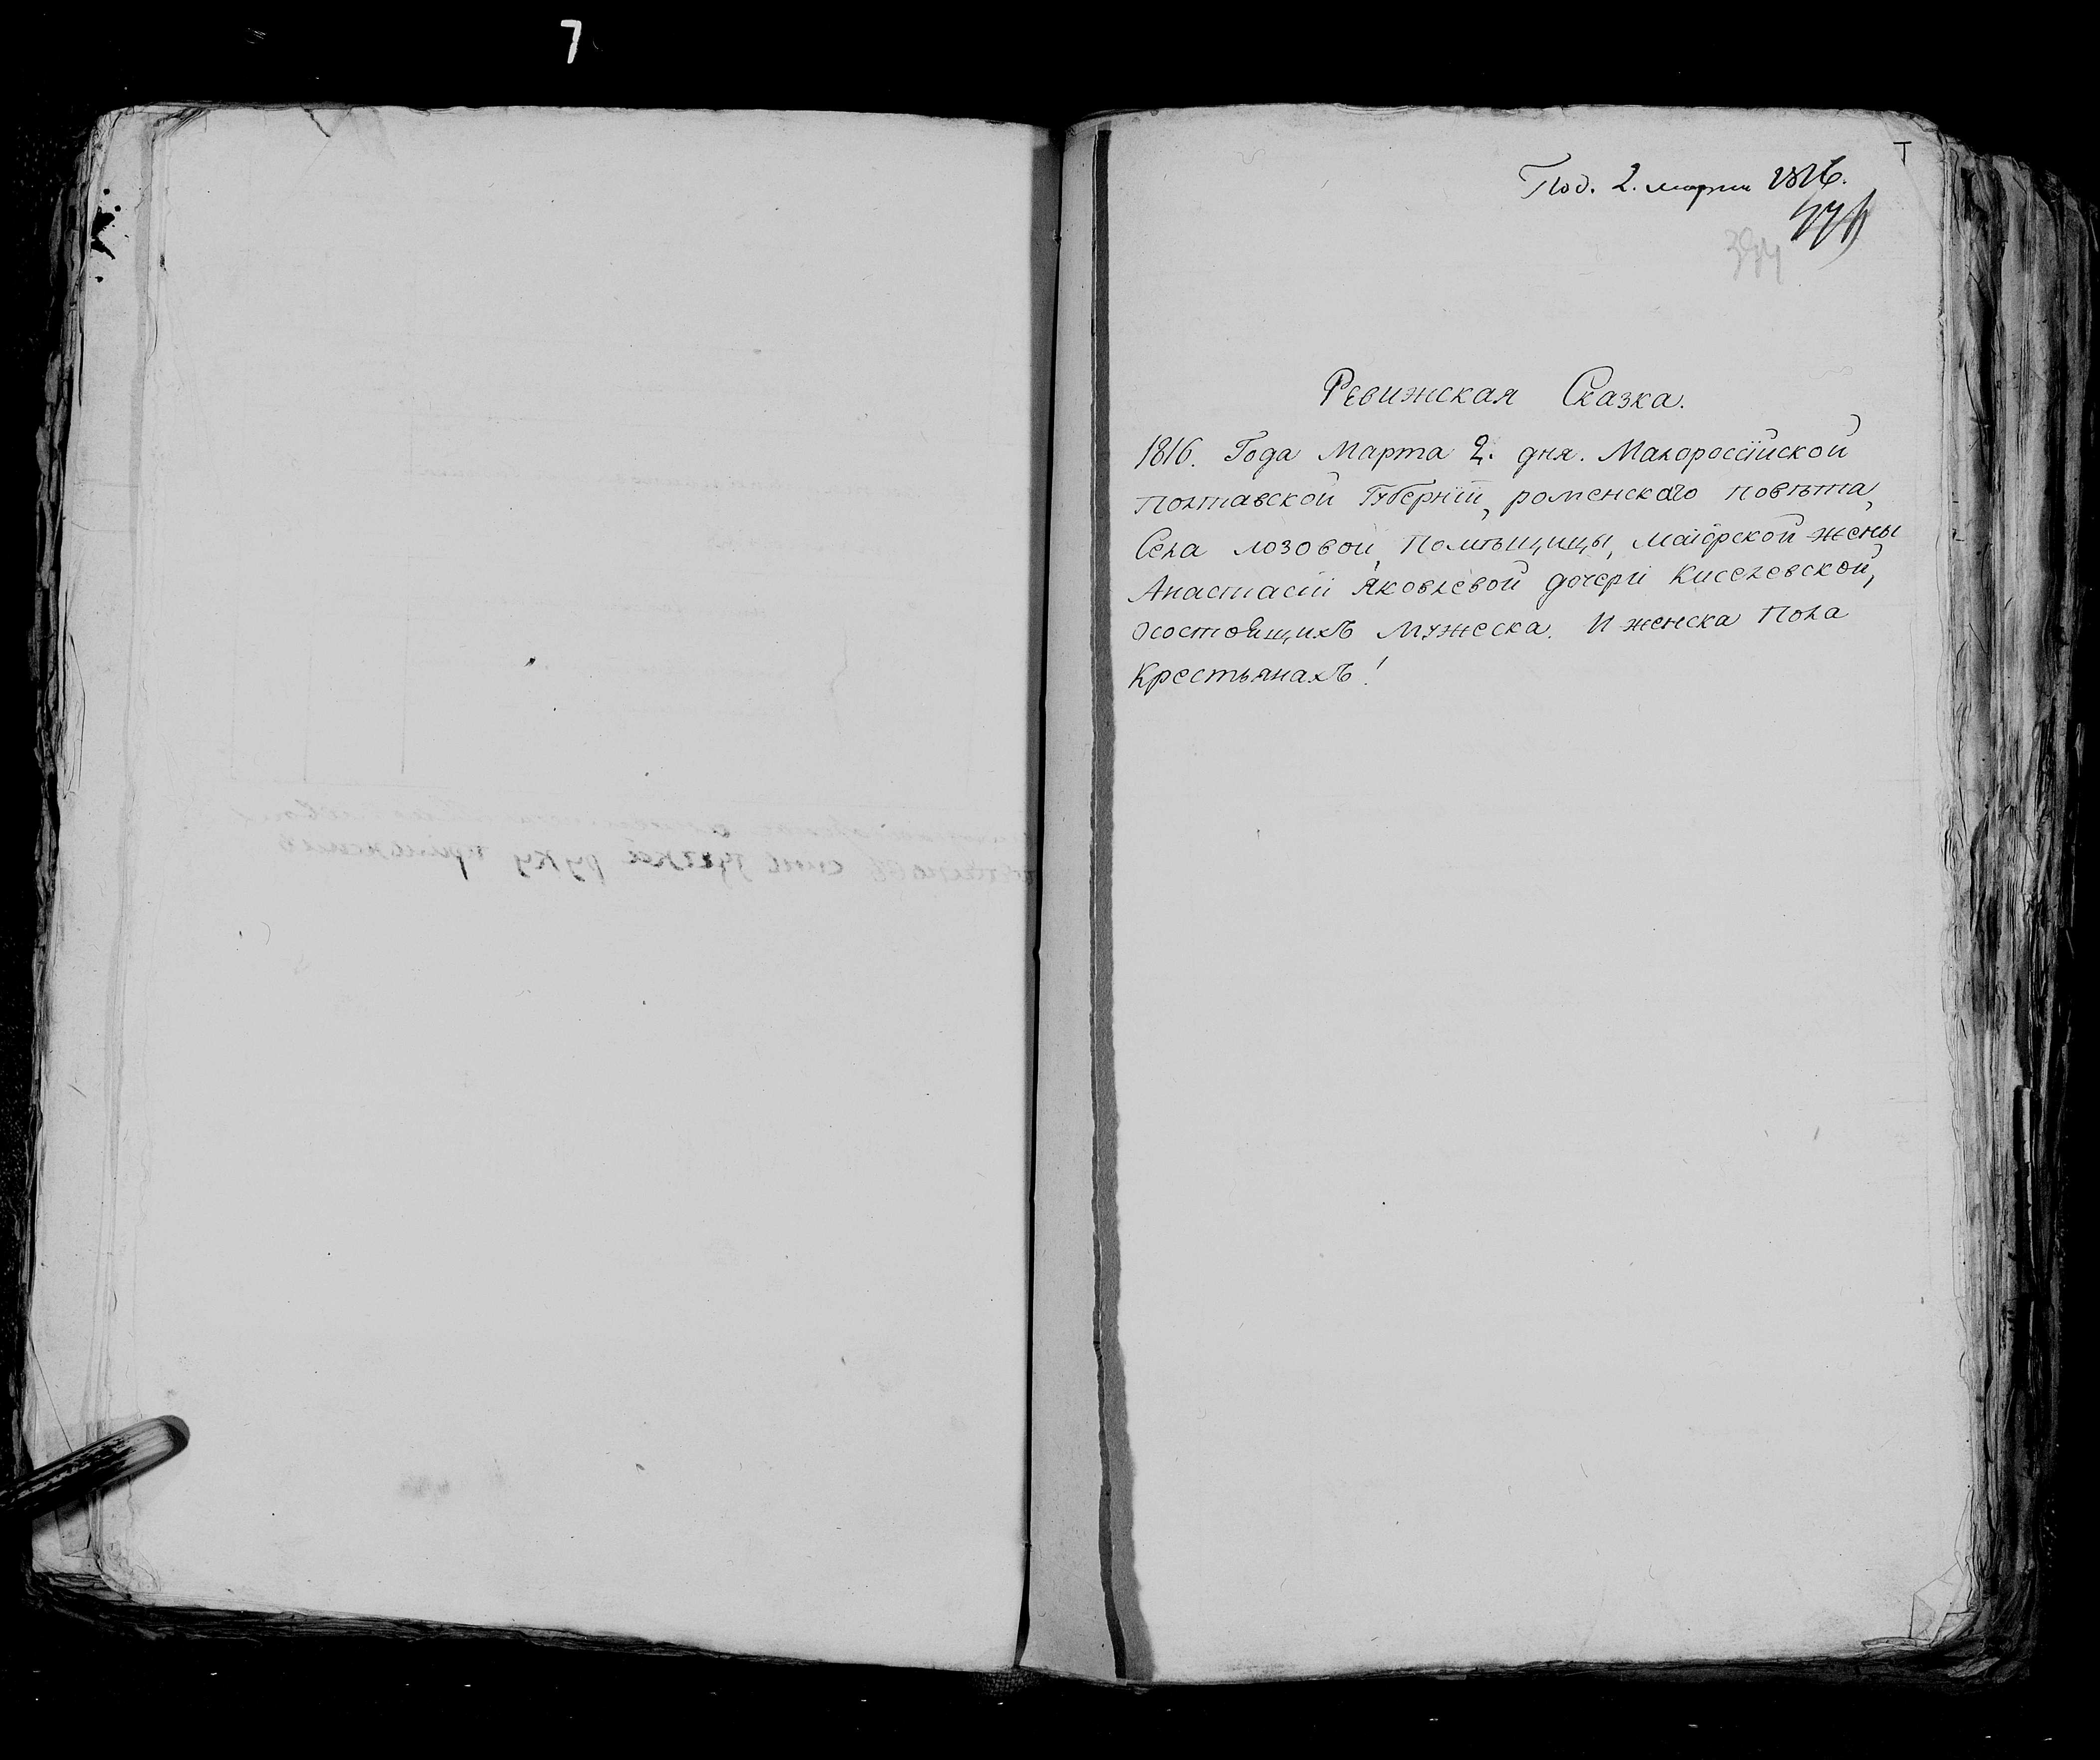 7
Под. 2. марта 1816.
Ревижская Сказка.
1816. Года Марта 2. дня. Малоросїйской
Полтавской Губернїи, роменскаго повѣта,
Села лозовой, Помѣщицы, маїорской жены
Анастасїи Яковлевой дочери Киселевской,
Осостоящихъ Мужеска. И женска Пола
Крестьянахъ!